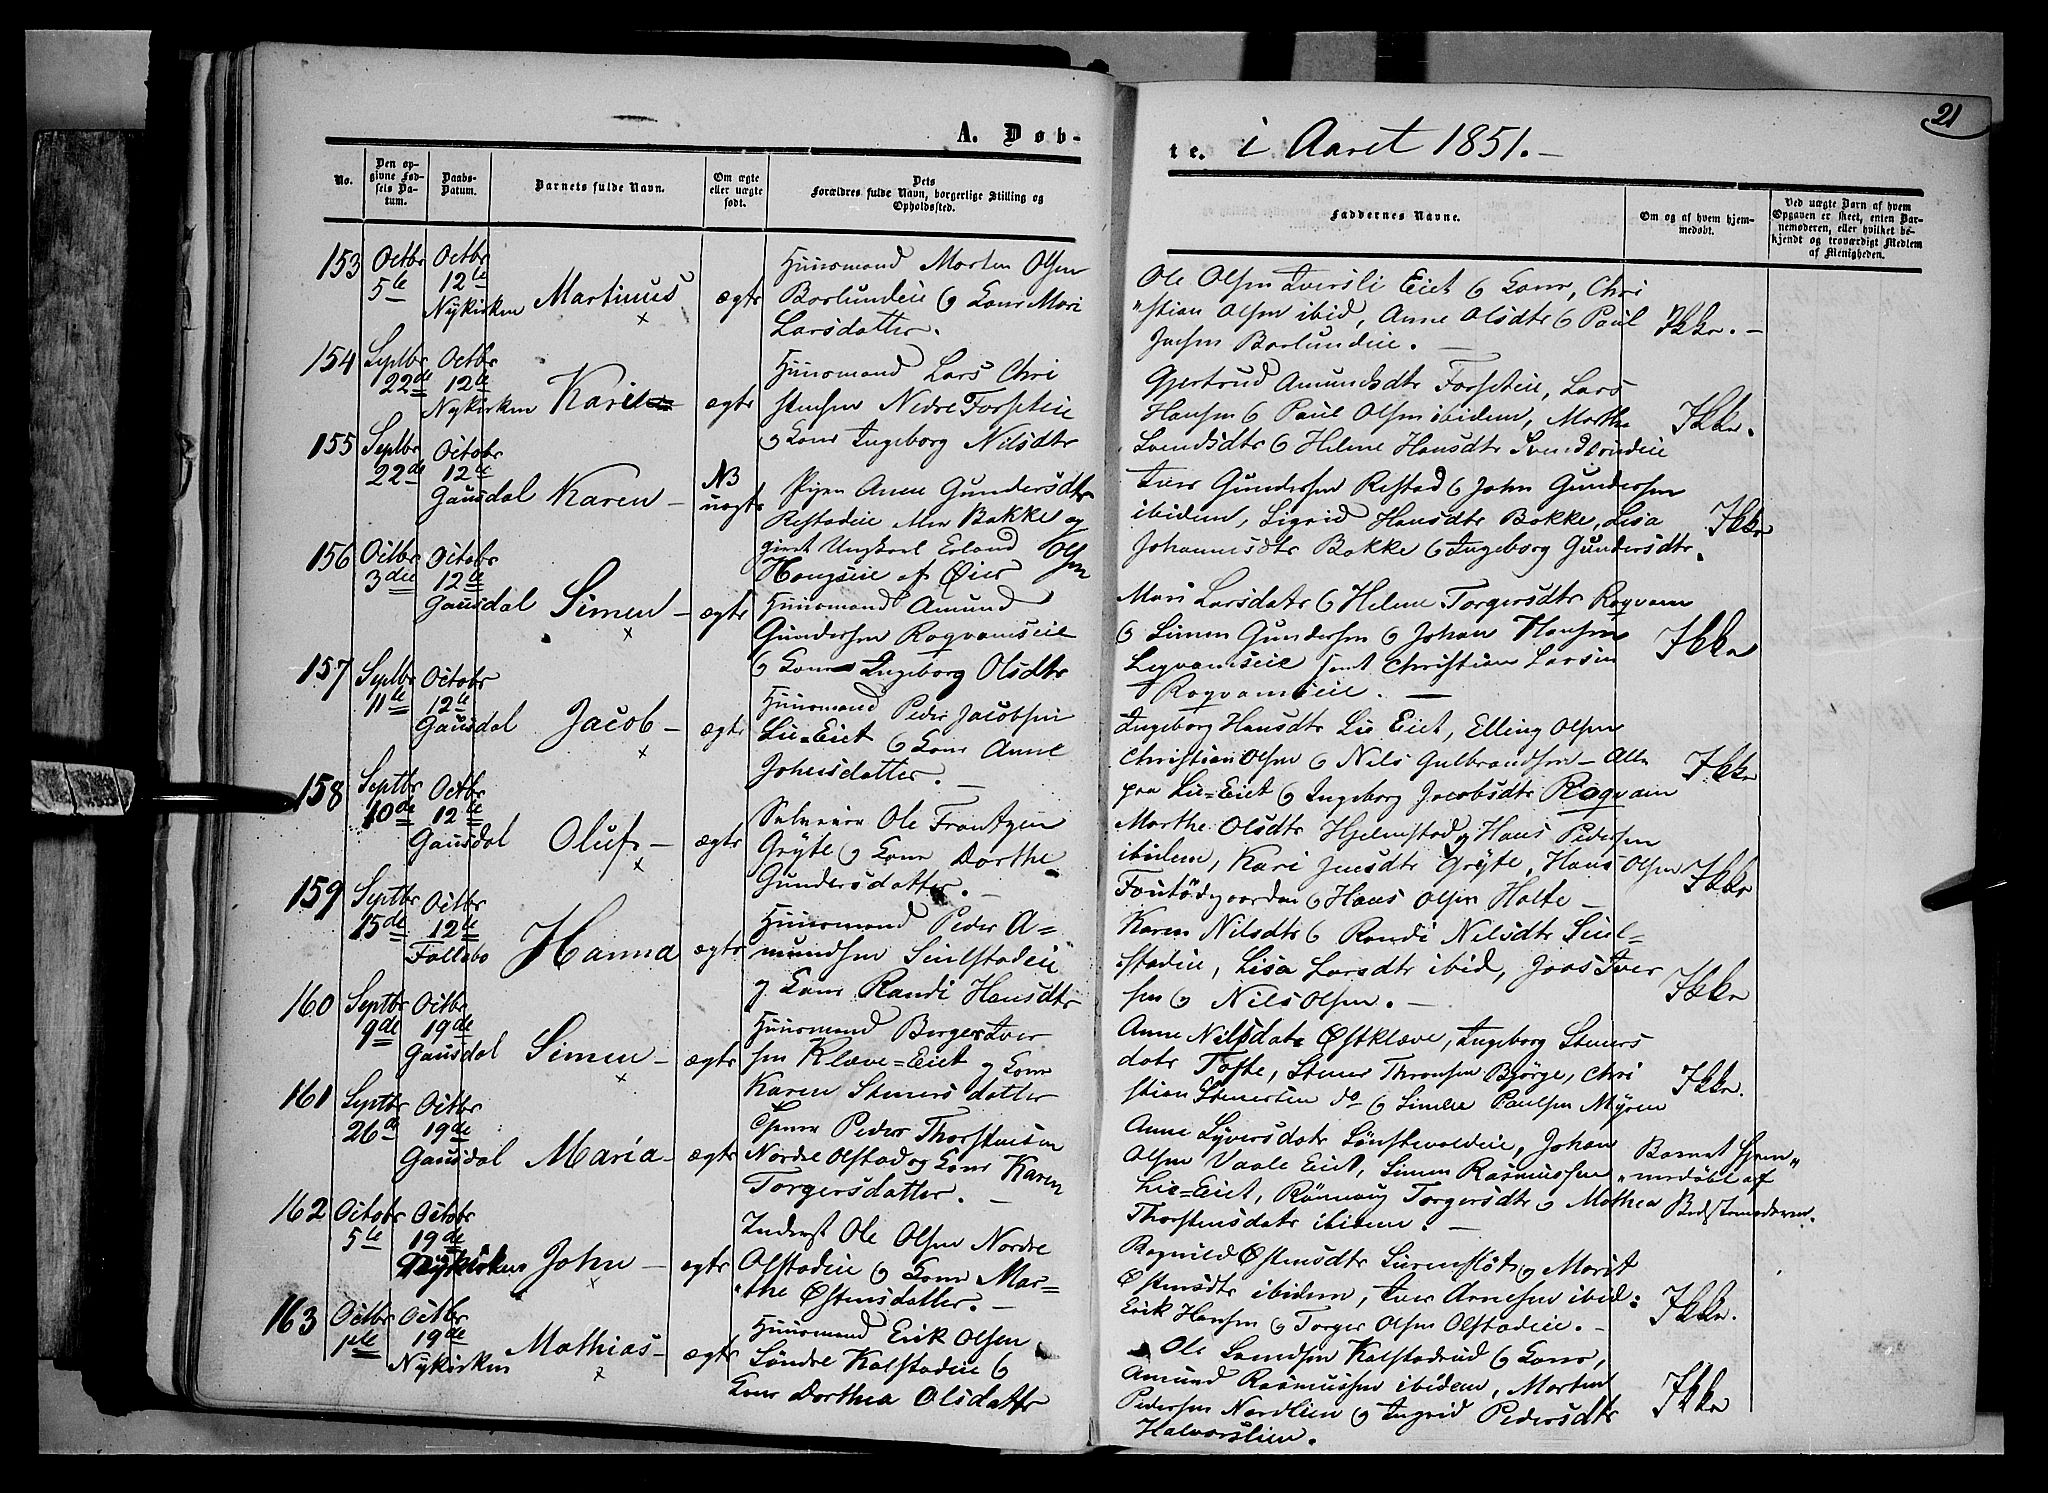 21
A. Døb-
te. i Aaret 1851.-
No.
Den op-
givne Fød-
sels Da-
tum.
Daabs-
Datum.
Barnets fulde Navn.
Om ægte
eller uægte
født.
Dets
Forældres fulde Navn, borgerlige Stilling og
Opholdssted.
Faddernes Navne.
Om og af hvem hjem-
medøbt.
Ved uægte Børn af hvem
Opgaven er skeet, enten Bar-
nemoderen, eller hvilket be-
kjendt og troværdigt Medlem
af Menigheden.
153
Octbr
5te
Octbr
12te
Nykirken
Martinus
x
ægte
Huusmand Morten Olsen
Borlundeie & Kone Mari
Larsdatter.
Ole Olsen Iversli Eiet & Kone, Chri
"stian Olsen ibid, Anne Olsdtr & Paul
Borlundeie.
Ikke.-
154
Septbr
22de
Octbr
12te
Nykirken
Kari
ægte
Huusmand Lars Chri
stensen Nedre Forseteie
& Kone Ingeborg Nilsdtr
Gjertrud Amundsdtr Forseteie, Lars
Hansen & Paul Olsen ibidem, Marthe
Svendsdtr & Helene Hansdtr
Ikke.
155
Septbr
22de
Octobr
12te
Gausdal
Karen -
NB
uægte
Pigen Anne Gundersdtr
Restadeie Bakke og
Ungkarl Erland Olsen
af Øier
Iver Gundersen Restad & John Gundersen
ibidem, Sigrid Hansdtr Bakke, Lisa
Johannesdtr Bakke & Ingeborg Gundersdtr.
Ikke
156
Octbr
3die
Octobr
12te
Gausdal
Simen -
x
ægte
Huusmand Amund
Gundersen Roqvamseie
& Kone Ingeborg Olsdtr
Mari Larsdatr & Helene Torgersdtr Roqvam
& Simen Gundersen & Johan Hansen
samt Christian Larsen
Roqvamseie. -
Ikke
157
Septbr
11te
Octobr
12te
Gausdal
Jacob -
x
ægte
Huusmand Peder Jacobsen
Lie=Eiet & Kone Anne
Johnsdatter. -
Ingeborg Hansdtr Lie Eiet, Elling Olsen
Christian Olsen & Nils Gulbrandsen - Alle
paa Lie=Eiet & Ingeborg Jacobsdtr Roqvam
Ikke
158
Septbr
10de
Octbr
12te
Gausdal
Oluf -
x
ægte
Ole Frantzen
Gryte & Kone Dorthe
Gundersdatter. -
Marthe Olsdtr Hjelmstad og Hans Pedersen
ibidem, Kari Jensdtr Gryte, Hans Olsen
& Hans Olsen Holte -
Ikke
159
Septbr
15de
Octbr
12te
Follebo
Hanna
ægte
Huusmand Peder A=
mundsen
og Kone Randi Hansdtr
Karen Nilsdtr & Randi Nilsdtr
stadeie, Lisa Larsdtr ibid, Iver
sen & Nils Olsen. -
Ikke
160
Septbr
9de
Octbr
19de
Gausdal
Simen -
x
ægte
Huusmand Børger Iver
sen Klæve=Eiet og Kone
Karen Stenersdatter
Anne Nilsdatr Østklæve, Ingeborg Steners
datr Tofte, Stener Thronsen Bjørge, Chri
stian Stenersen do & Paulsen Myren
Ikke.
161
Septbr
26de
Octbr
19de
Gausdal
Maria -
ægte
Peder Thorstensen
Nordre Olstad og Kone Karen
Torgersdatter. -
Anne Syversdatr, Johan
Olsen Vaale Eiet, Simen Rasmussen
Lie=Eiet, Rønnaug Torgersdtr & Mathea
Thorstensdatr ibidem. -
Barnet hjem„
„medøbt af
Bedstemoderen.
162
Octobr
5te
Octbr
19de
Nykirken
John -
x
ægte
Inderst Ole Olsen Nordre
Olstadeie & Kone Mar=
"the Østensdatter. -
Ragnild Østensdtr & Marit
Østensdtr ibidem, Iver Arnesen ibid:
Erik Hansen & Torger Olsen Olstadeie. -
Ikke.
163
Octbr
1ste
Octbr
19de
Nykirken
Mathias -
x
ægte
Huusmand Erik Olsen
Søndre Kalstadeie &
Kone Dorthea Olsdatter
Ole Kalstadrud & Kone,
Amund Rasmussen ibidem, Morten
Pedersen Nordlien & Ingrid Pedersdtr
Halvorslien.
Ikke